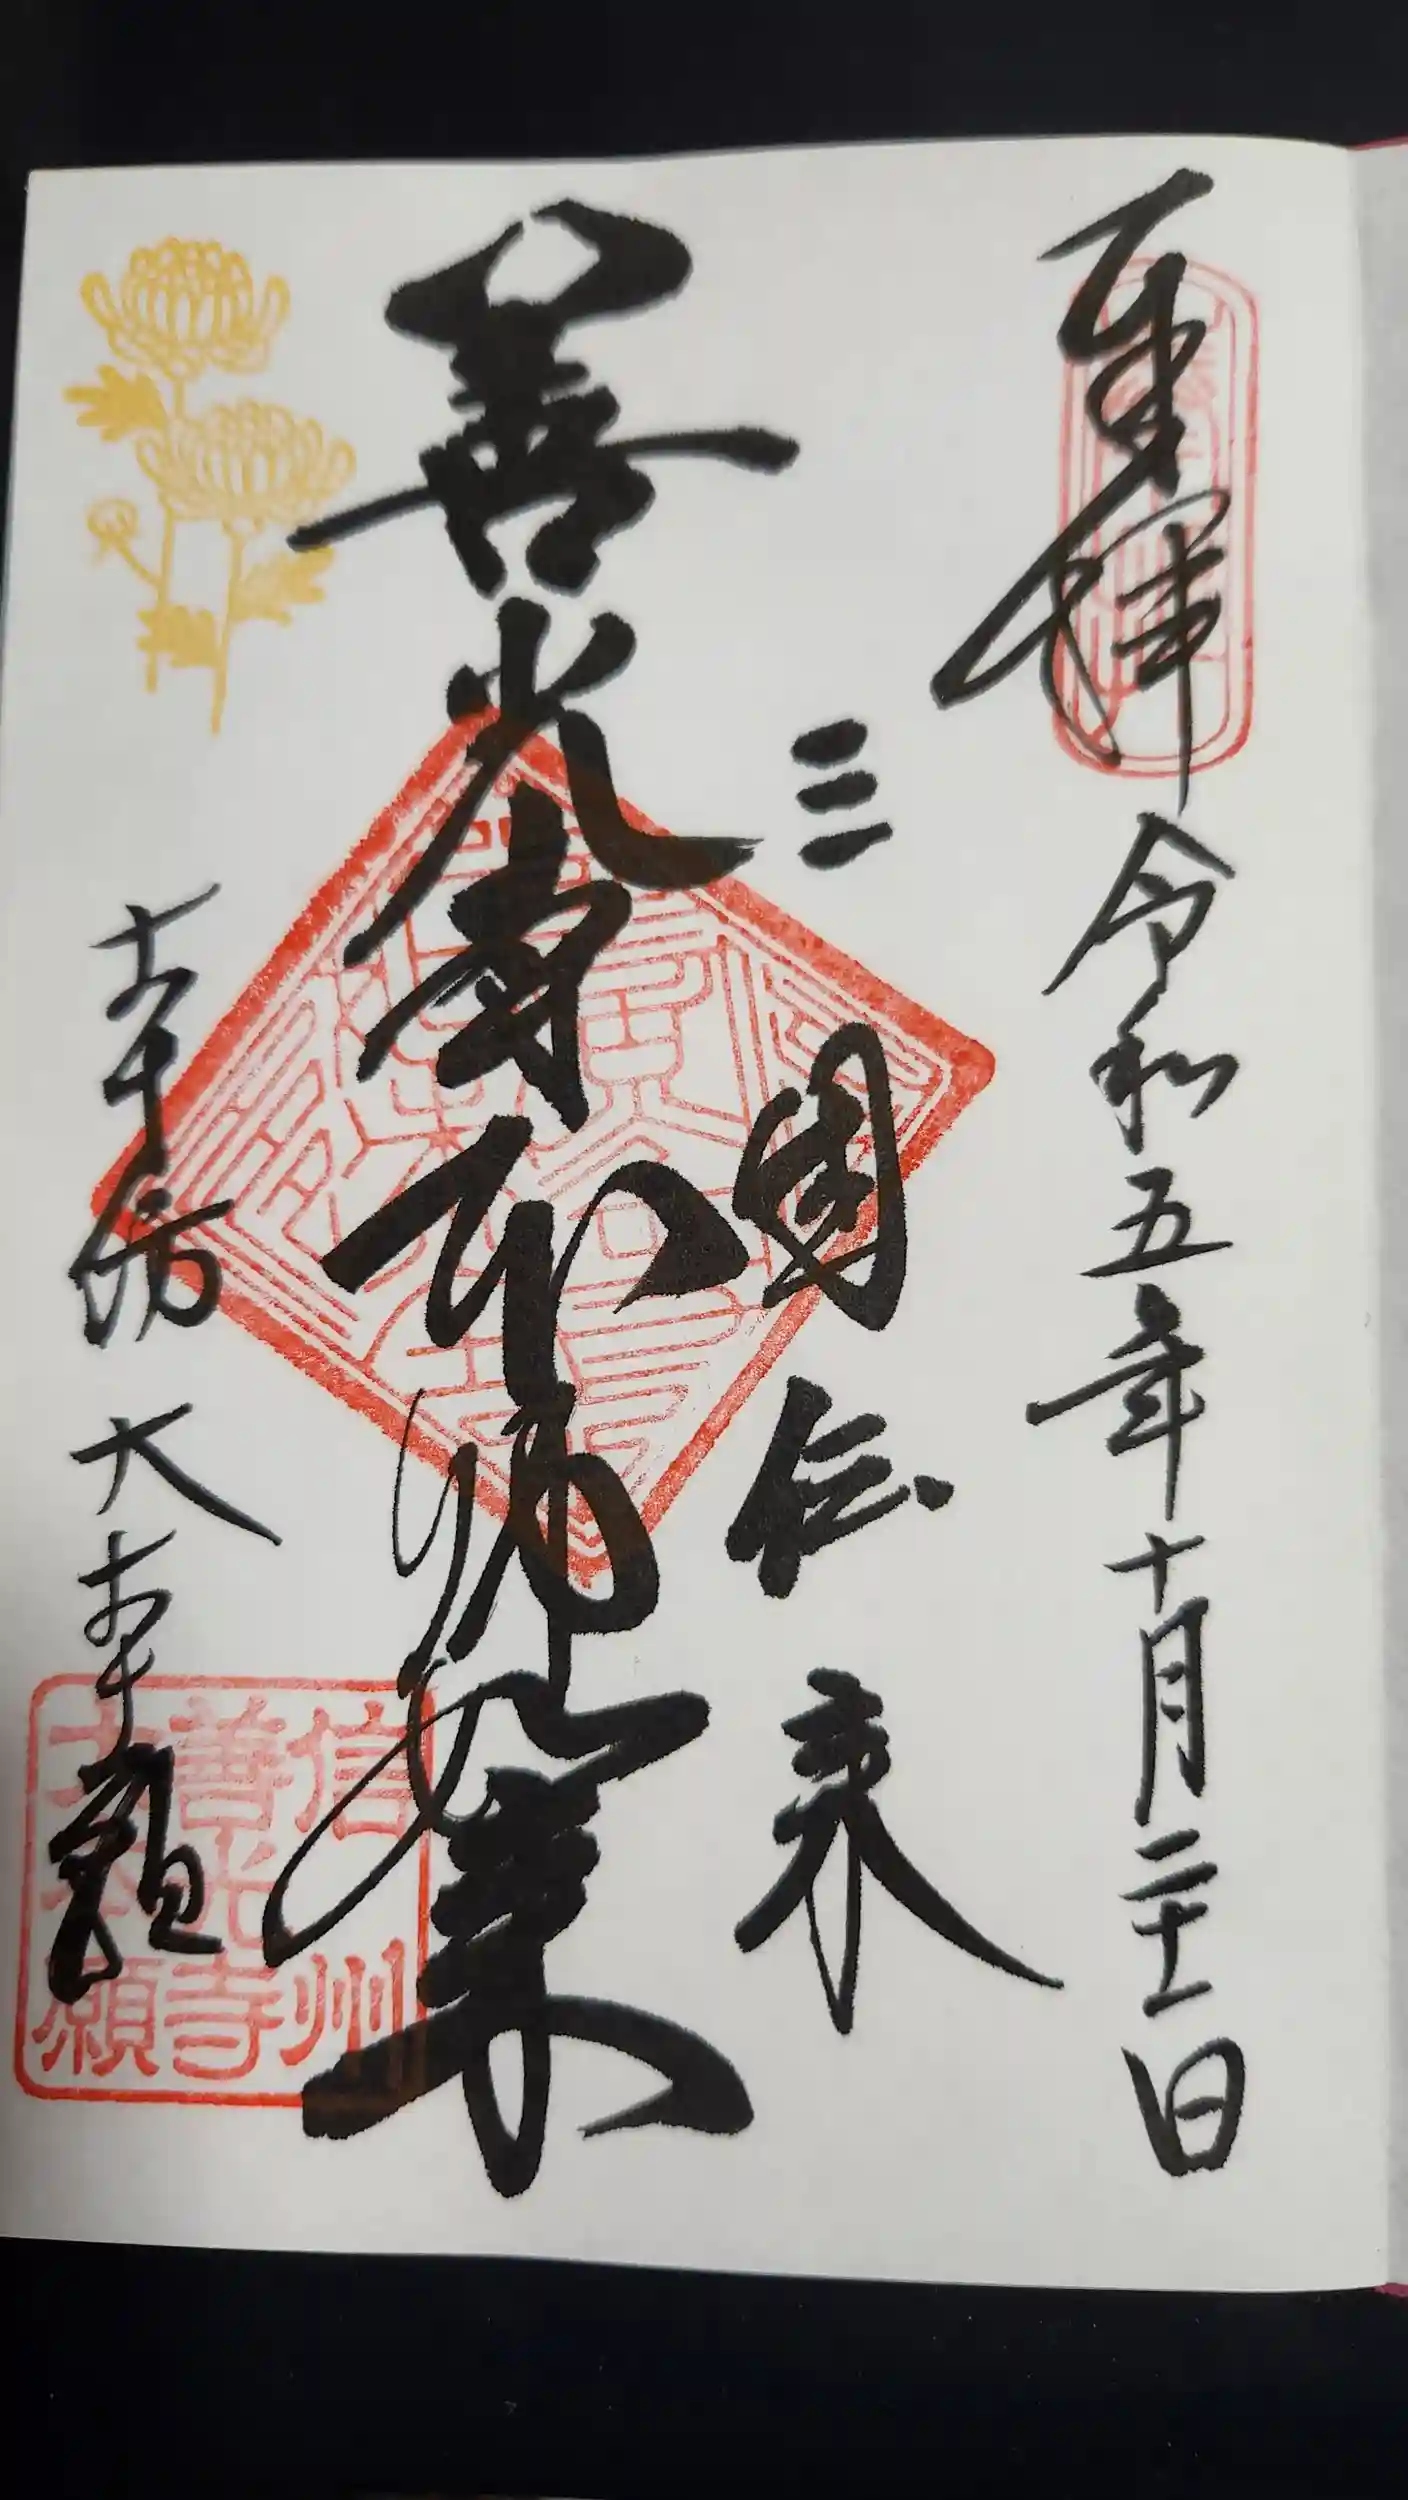 奉拝 令和五年十月二十一日
三國伝来
善光寺如来
本坊 大本願
信州
善光寺
大本願